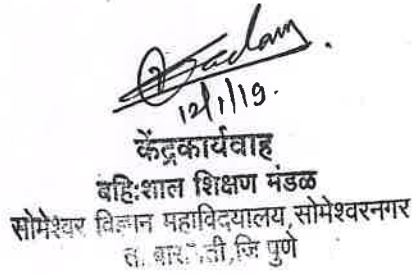 12/1/19.
केंद्रकार्यवाह
बहि:शाल शिक्षण मंडळ
सोमेश्वर विज्ञान महाविदयालय,सोमेश्वरनगर
जि पुणे